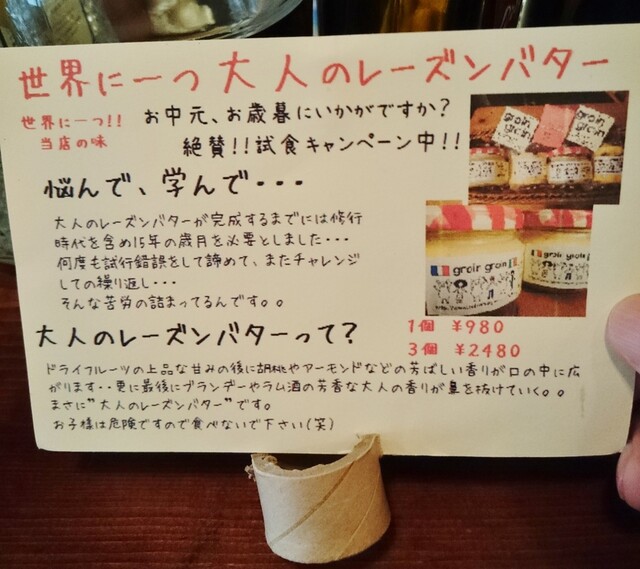 世界に一つ大人のレーズンバター
世界に一つ!!
当店の味
お中元、お歳暮にいかがですか?
絶賛!!試食キャンペーン中!!
悩んで、学んで・・・
大人のレーズンバターが完成するまでには修行
時代を含め15年の歳月を必要としました・・・
何度も試行錯誤をして諦めて、またチャレンジ
しての繰り返し・・・
そんな苦労の詰まってるんです。。
groir groin
groir groin
1個 ¥980
3個 ¥2480
大人のレーズンバターって?
ドライフルーツの上品な甘みの後に胡桃やアーモンドなどの芳ばしい香りが口の中に広
がります・・更に最後にブランデーやラム酒の芳香な大人の香りが鼻を抜けていく。。
まさに"大人のレーズンバター"です。
お子様は危険ですので食べないで下さい(笑)